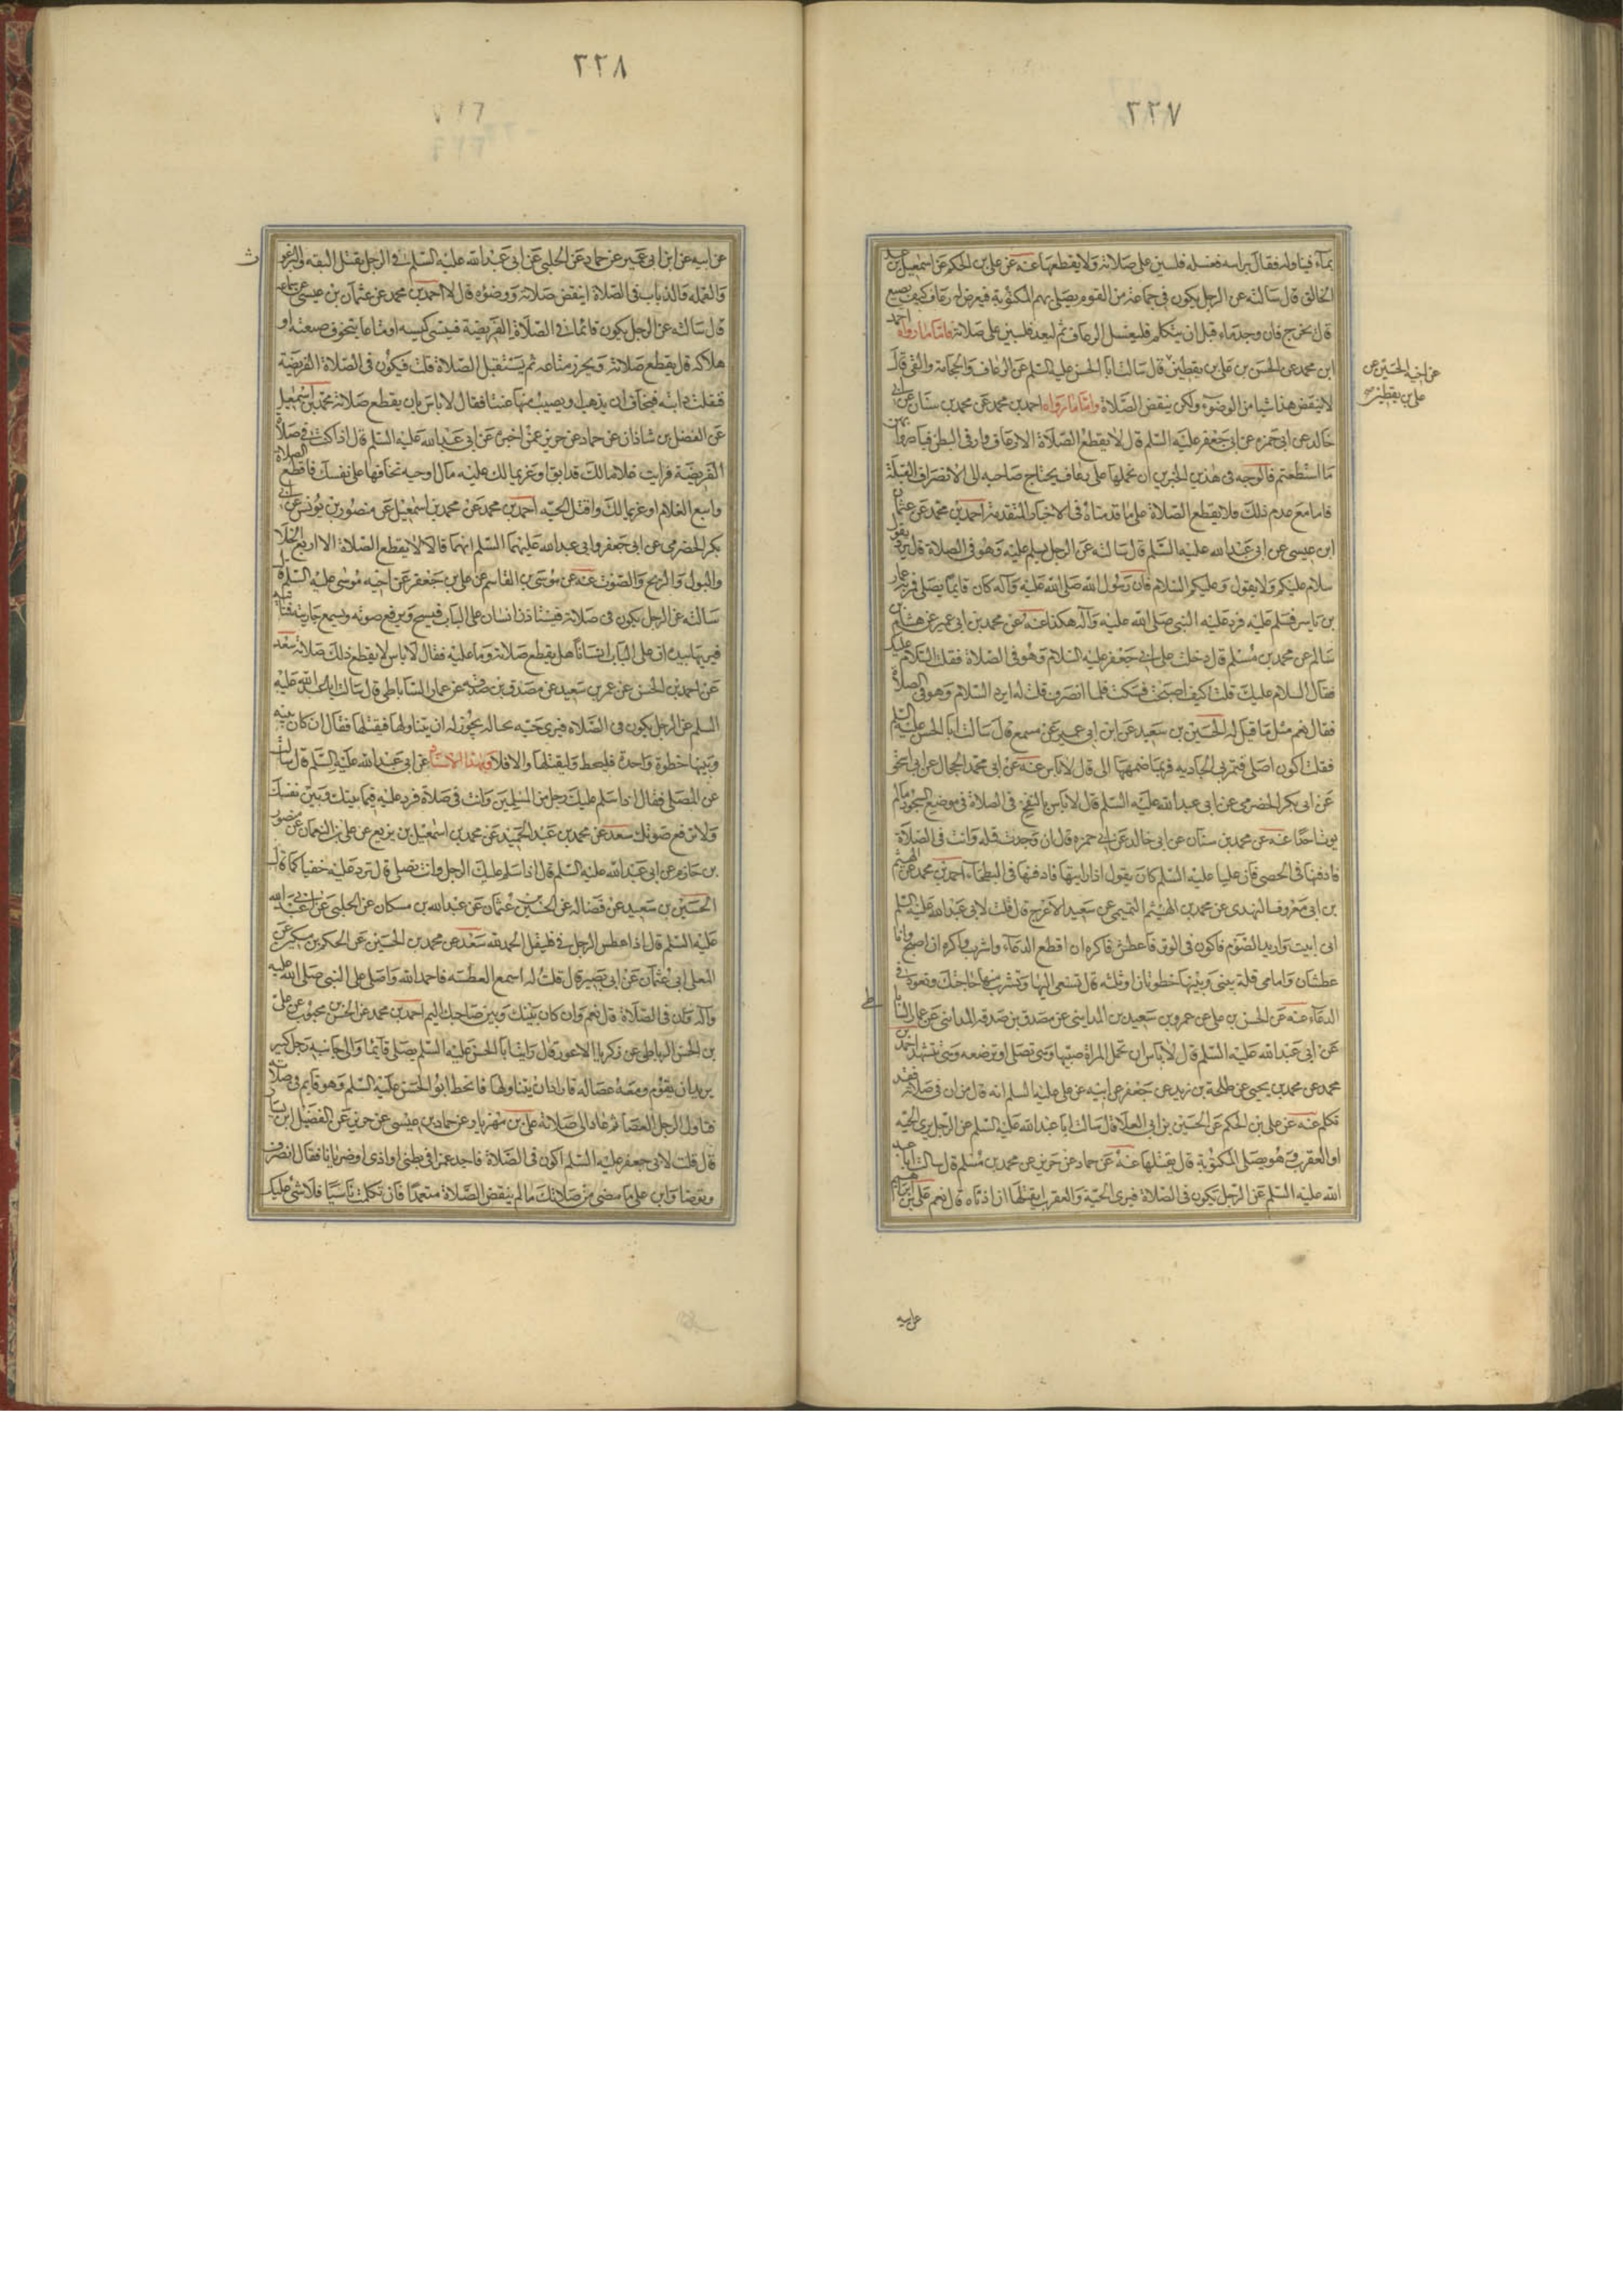 ٣٢٧
بماء فيناوله فقال براسه فغسله فليبن على صلاته ولا يقطعها عنه عن على بن الحكم عن اسمعيل بن عبد
الخالق قال سالته عن الرجل يكون فى جماعة من القوم يصلى بهم المكتوبة فيعرض له رعاف كيف يصنع
قال يخرج فان وجد ماء قبل ان يتكلم فليغسل الرعاف ثم ليعد فليبن على صلاته فاما ما رواه احمد
ابن محمد عن الحسن بن على بن يقطين قال سالت ابا الحسن عليه السلم عن الرعاف والحجامة والقى قال
عن اخيه الحسين عن
على بن يقطين
لا ينقض هذا شيا من الوضوء ولكن ينقض الصلاة واما ما رواه احمد بن محمد عن محمد بن سنان عن ابى
خالد عن ابى حمزه عن ابى جعفر عليه السلم قال لا يقطع الصلاة الا رعاف وازّ فى البطن فبادروا بهن
ما استطعتم فالوجه فى هذين الخبرين ان نحملها على رعاف يحتاج صاحبه الى الانصراف القبلة
فاما مع عدم ذلك فلا يقطع الصلاة على ما قدمناه فى الاخبار المتقدمة احمد بن محمد عن عثمان
ابن عيسى عن ابى عبد الله عليه السلم قال سالته عن الرجل يسلم عليه وهو فى الصلاة قال يرد يقول
سلام عليكم ولا يقول وعليكم السلام فان رسول الله صلى الله عليه وآله كان قايما يصلى فمر به عمار
بن ياسر فسلم عليه فرد عليه النبى صلى الله عليه وآله هكذا عنه عن محمد بن ابى عمير عن هشام بن
سالم عن محمد بن مسلم قال دخلت على ابى جعفر عليه السلام وهو فى الصلاة فقلت السلام عليك
فقال السلام عليك قلت كيف اصبحت فسكت فلما انصرف قلت له ايرد السلام وهو فى الصلاة
فقال نعم مثل ما قيل له الحسين بن سعيد عن ابن ابى عمير عن مسمع قال سالت ابا الحسن عليه السلم
فقلت اكون اصلى فتمر بى الجاريه فربما ضممتها الى قال لا باس عنه عن ابى محمد الحجال عن ابى اسحق
عن ابى بكر الحضرمى عن ابى عبد الله عليه السلم قال لا باس بالنفخ فى الصلاة فى موضع السجود ما لم
يوذ احدا عنه عن محمد بن سنان عن ابى خالد عن ابى حمزه قال ان وجدت قمله وانت فى الصلاة
فادفنها فى الحصى فان عليا عليه السلم كان يقول اذا رايتها فادفنها فى البطحاء احمد بن محمد عن الهيثم
بن ابى معروف النهدى عن محمد بن الهيثم التميمى عن سعيد الاعرج قال قلت لابى عبد الله عليه السلم
انى ابيت واريد الصوم فاكون فى الوتر فاعطش فاكره ان اقطع الدعاء واشرب واكره ان اصبح وانا
عطشان وامامى قلة بينى وبينها خطوتان او ثلثه قال تسعى اليها وتشرب منها حاجتك وتعود فى
الدعاء عنه عن الحسن بن على عن عمرو بن سعيد بن المداينى عن مصدق بن صدقه المداينى عن عمار الساباطى
عن ابى عبد الله عليه السلم قال لا باس ان تحمل المراة صبيها وهى تصلى او ترضعه وهى تتشهد احمد بن
محمد عن محمد بن يحيى عن طلحة بن زيد عن جعفر عن ابيه عن على عليه السلم انه قال من ان فى صلاته فقد
تكلم عنه عن على بن الحكم عن الحسين بن ابى العلا قال سالت ابا عبد الله عليه السلم عن الرجل يرى الحيه
او العقرب وهو يصلى المكتوبة قال يقتلها عنه عن حماد عن حريز عن محمد بن مسلم قال سالت ابا عبد
الله عليه السلم عن الرجل يكون فى الصلاة فيرى الحية والعقرب ايقتلها ان اذتاه قال نعم على بن ابراهيم
عن ابيه
٣٣٨
عن ابيه عن ابن ابى عمير عن حماد عن الحلبى عن ابى عبد الله عليه السلم فى الرجل يقتل البقه والبرغوث
والقمله والذباب فى الصلاة اينقض صلاته ووضوءه قال لا احمد بن محمد عن عثمان بن عيسى عن سماعه
قال سالته عن الرجل يكون قائما فى الصلاة الفريضة فينسى كيسه او متاعا يتخوف ضيعته او
هلاكه قال يقطع صلاته ويحرز متاعه ثم يستقبل الصلاة قلت فيكون فى الصلاة الفريضة
فتفلت دابته فيخاف ان يذهب او يصيب منها عنتا فقال لا باس بان يقطع صلاته محمد بن اسمعيل
عن الفضل بن شاذان عن حماد عن حريز عمن اخبره عن ابى عبد الله عليه السلم قال اذا كنت فى صلاة
الفريضة فرايت غلاما لك قد ابق او غريما لك عليه مال او حيه تخافها على نفسك فاقطع الصلاة
واتبع الغلام او غريما لك واقتل الحيه احمد بن محمد عن محمد بن اسمعيل عن منصور بن يونس عن ابى
بكر الحضرمى عن ابى جعفر وابى عبد الله عليهما السلم انهما قالا لا يقطع الصلاة الا اربع الخلا
والبول والريح والصوت عنه عن موسى بن القاسم عن على بن جعفر عن اخيه موسى عليه السلم قال
سالته عن الرجل يكون فى صلاته فيستاذن انسان على الباب فيسبح ويرفع صوته ويسمع جاريته فتاتيه
فيريها بيده ان على الباب انسانا هل يقطع صلاته وما عليه فقال لا باس لا يقطع ذلك صلاته سعد
عن احمد بن الحسن عن عمرو بن سعيد عن مصدق بن صدقه عن عمار الساباطى قال سالت ابا عبد الله عليه
السلم عن الرجل يكون فى الصلاة فيرى حيه بحياله يجوز له ان يتناولها فيقتلها فقال ان كان بينه
وبينها خطوة واحدة فليخط وليقتلها والا فلا وبهذا الاسناد عن ابى عبد الله عليه السلم قال سالته
عن المصلى فقال اذا سلم عليك رجل من المسلمين وانت فى صلاة فرد عليه فيما بينك وبين نفسك
ولا ترفع صوتك سعد عن محمد بن عبد الحميد عن محمد بن اسمعيل بن بزيع عن على بن النعمان عن منصور
بن حازم عن ابى عبد الله عليه السلم قال اذا سلم عليك الرجل وانت تصلى قال ترد عليه خفيا كما قال
الحسين بن سعيد عن فضاله عن الحسين بن عثمان عن عبد الله بن مسكان عن الحلبى عن ابى عبد الله
عليه السلم قال اذا عطس الرجل فى فليقل الحمد لله سعد عن محمد بن الحسين عن الحكم بن مسكين عن
المعلى ابى عثمان عن ابى بصير قال قلت له اسمع العطسه فاحمد الله واصلى على النبى صلى الله عليه
وآله وان فى الصلاة قال نعم وان كان بينك وبين صاحبك اليم احمد بن محمد عن الحسن بن محبوب عن على
بن الحسن الرباطى عن زكريا الاعور قال رايت ابا الحسن عليه السلم يصلى قائما والى جانبه رجل كبير
يريد ان يقوم ومعه عصا له فاراد ان يتناولها فانحط ابو الحسن عليه السلم وهو قايم فى صلاته
فناول الرجل العصا ثم عاد الى صلاته على بن مهزيار عن حماد بن عيسى عن حريز عن الفضيل بن يسار
قال قلت لابى جعفر عليه السلم اكون فى الصلاة فاجد غمزا فى بطنى او اذى او ضربانا فقال انصرف
وتوضا وابن على ما مضى من صلاتك ما لم ينقض الصلاة متعمدا فان تكلمت ناسيا فلا شى عليك